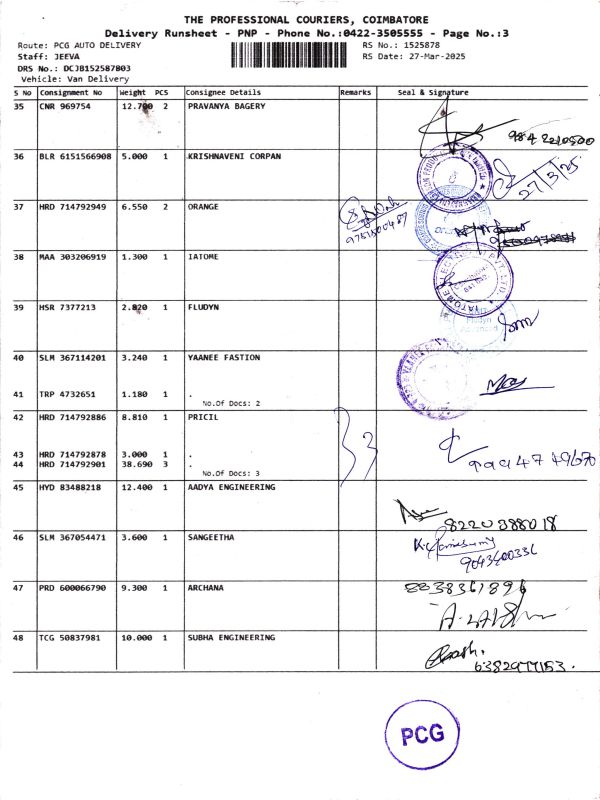 THE PROFESSIONAL COURIERS, COIMBATORE
Delivery Runsheet - PNP - Phone No.:0422-3505555 - Page No.:3
Route: PCG AUTO DELIVERY
RS No.: 1525878
Staff: JEEVA
RS Date: 27-Mar-2025
DRS No.: DCJB152587803
Vehicle: Van Delivery
S No Consignment No Weight PCS Consignee Details Remarks Seal & Signature
35 CNR 969754 12.700 2 PRAVANYA BAGERY
9842210500
36 BLR 6151566908 5.000 1 KRISHNAVENI CORPAN
27/3/25
37 HRD 714792949 6.550 2 ORANGE
9751800487
38 MAA 303206919 1.300 1 IATOME
39 HSR 7377213 2.820 1 FLUDYN
Fludyn
Advanced
40 SLM 367114201 3.240 1 YAANEE FASTION
41 TRP 4732651 1.180 1 .
No.Of Docs: 2
42 HRD 714792886 8.810 1 PRICIL
43 HRD 714792878 3.000 1 .
44 HRD 714792901 38.690 3 .
No.Of Docs: 3
45 HYD 83488218 12.400 1 AADYA ENGINEERING
8220388018
46 SLM 367054471 3.600 1 SANGEETHA
9043400336
47 PRD 600066790 9.300 1 ARCHANA
8838361896
48 TCG 50837981 10.000 1 SUBHA ENGINEERING
6382977153.
PCG